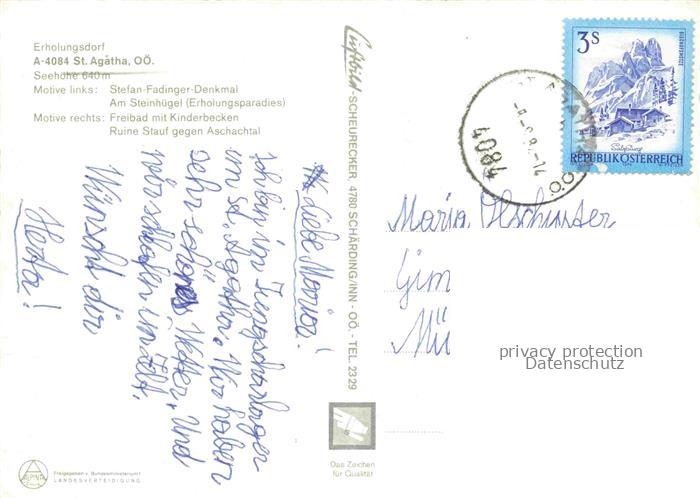 Erholungsdorf
A-4084 St. Agatha, OÖ.
Seehöhe 640 m
Motive links: Stefan-Fadinger-Denkmal
Am Steinhügel (Erholungsparadies)
Motive rechts: Freibad mit Kinderbecken
Ruine Stauf gegen Aschachtal
Liebe Maria!
Ich bin im Jungscharlager
im St. Agatha. Wir haben
sehr schönes Wetter. Und
wir schlafen im Zelt.
Wünscht dir
Herta!
Luftbild-SCHEURECKER, 4780 SCHÄRDING/INN - OÖ. - TEL. 23 29
3S
REPUBLIK ÖSTERREICH
4084
Maria
Gim
Mü
privacy protection
Datenschutz
Das Zeichen
für Qualität
ALPINA
Freigegeben v. Bundesministerium f.
LANDESVERTEIDIGUNG